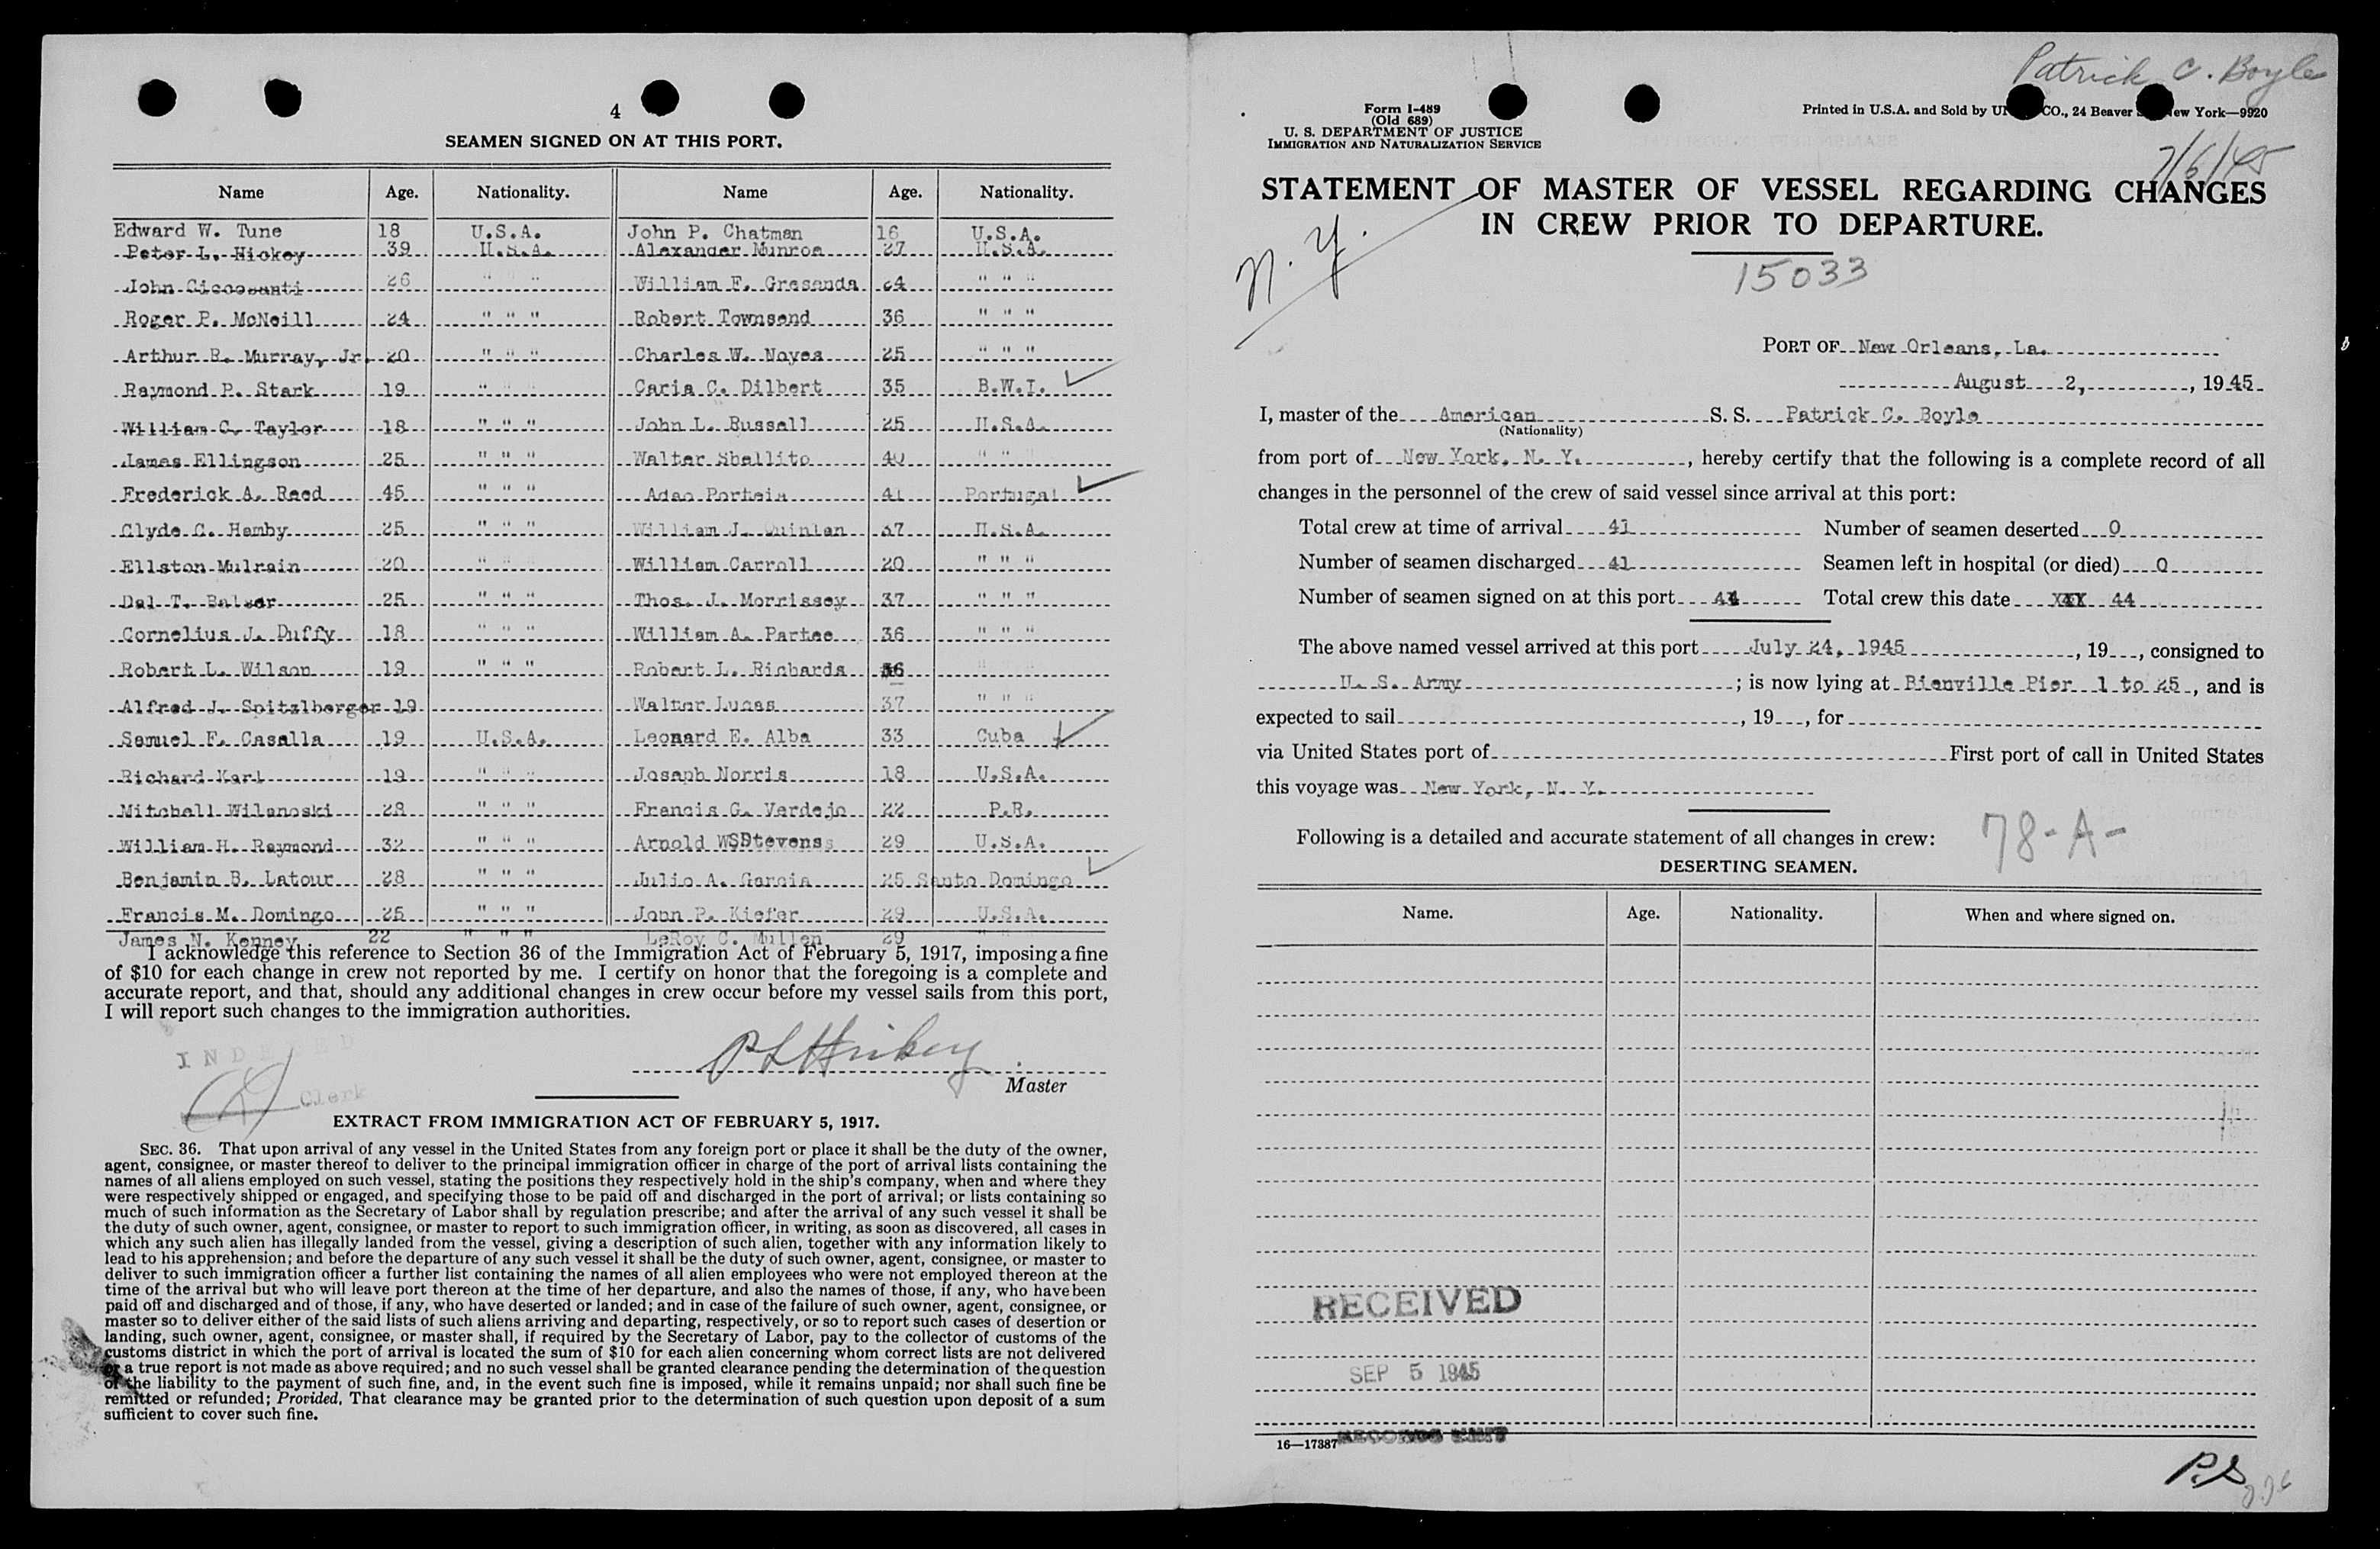 4
SEAMEN SIGNED ON AT THIS PORT.
Name Age. Nationality. Name Age. Nationality.
Edward W. Tune 18 U.S.A. John P. Chatman 16 U.S.A.
Peter L. Hickey 39 U.S.A. Alexander Munroe 27 U.S.A.
John Ciccosanti 26 " " " William F. Gresenda 24 " " "
Roger P. McNeill 24 " " " Robert Townsend 36 " " "
Arthur R. Murray, Jr. 20 " " " Charles W. Noyes 25 " " "
Raymond P. Stark 19 " " " Caria C. Dilbert 35 B.W.I.
William C. Taylor 18 " " " John L. Russell 25 U.S.A.
James Ellingson 25 " " " Walter Sballito 40 " "
Frederick A. Reed 45 " " " Adao Porteia 41 Portugal
Clyde C. Hamby 25 " " " William J. Quinlan 37 U.S.A.
Ellston Mulrain 20 " " " William Carroll 20 " " "
Dal T. 25 " " " Thos. J. Morrissey 37 " " "
Cornelius J. Duffy 18 " " " William A. Partee 36 " " "
Robert L. Wilson 19 " " " Robert L. Richards 36 "
Alfred J. Spitzlberger 19 Walter Lucas 37 " " "
Samuel F. Casalla 19 U.S.A. Leonard E. Alba 33 Cuba
Richard Karl 19 " " " Joseph Norris 18 U.S.A.
Mitchell Wilanoski 28 " " " Francis G. Verdejo 22 P.R.
William H. Raymond 32 " " " Arnold W. Stevens 29 U.S.A.
Benjamin B. Latour 28 " " " Julio A. Garcia 25 Santo Domingo
Francis M. Domingo 25 " " " John P. Kiefer 29 U.S.A.
James N. Kenney 22 " " " LeRoy C. Mullen 29
I acknowledge this reference to Section 36 of the Immigration Act of February 5, 1917, imposing a fine
of $10 for each change in crew not reported by me. I certify on honor that the foregoing is a complete and
accurate report, and that, should any additional changes in crew occur before my vessel sails from this port,
I will report such changes to the immigration authorities.
INDEXED
Clerk
P L Hickey
Master
EXTRACT FROM IMMIGRATION ACT OF FEBRUARY 5, 1917.
SEC. 36. That upon arrival of any vessel in the United States from any foreign port or place it shall be the duty of the owner,
agent, consignee, or master thereof to deliver to the principal immigration officer in charge of the port of arrival lists containing the
names of all aliens employed on such vessel, stating the positions they respectively hold in the ship's company, when and where they
were respectively shipped or engaged, and specifying those to be paid off and discharged in the port of arrival; or lists containing so
much of such information as the Secretary of Labor shall by regulation prescribe; and after the arrival of any such vessel it shall be
the duty of such owner, agent, consignee, or master to report to such immigration officer, in writing, as soon as discovered, all cases in
which any such alien has illegally landed from the vessel, giving a description of such alien, together with any information likely to
lead to his apprehension; and before the departure of any such vessel it shall be the duty of such owner, agent, consignee, or master to
deliver to such immigration officer a further list containing the names of all alien employees who were not employed thereon at the
time of the arrival but who will leave port thereon at the time of her departure, and also the names of those, if any, who have been
paid off and discharged and of those, if any, who have deserted or landed; and in case of the failure of such owner, agent, consignee, or
master so to deliver either of the said lists of such aliens arriving and departing, respectively, or so to report such cases of desertion or
landing, such owner, agent, consignee, or master shall, if required by the Secretary of Labor, pay to the collector of customs of the
customs district in which the port of arrival is located the sum of $10 for each alien concerning whom correct lists are not delivered
or a true report is not made as above required; and no such vessel shall be granted clearance pending the determination of the question
of the liability to the payment of such fine, and, in the event such fine is imposed, while it remains unpaid; nor shall such fine be
remitted or refunded; Provided, That clearance may be granted prior to the determination of such question upon deposit of a sum
sufficient to cover such fine.
Patrick C. Boyle
Form I-489
(Old 689)
U. S. DEPARTMENT OF JUSTICE
IMMIGRATION AND NATURALIZATION SERVICE
Printed in U.S.A. and Sold by CO., 24 Beaver New York—9920
7/6/45
STATEMENT OF MASTER OF VESSEL REGARDING CHANGES
IN CREW PRIOR TO DEPARTURE.
N. Y.
15033
PORT OF New Orleans, La.
August 2, , 1945
I, master of the American S. S. Patrick C. Boyle
(Nationality)
from port of New York, N. Y. , hereby certify that the following is a complete record of all
changes in the personnel of the crew of said vessel since arrival at this port:
Total crew at time of arrival 41 Number of seamen deserted 0
Number of seamen discharged 41 Seamen left in hospital (or died) 0
Number of seamen signed on at this port 44 Total crew this date XXX 44
The above named vessel arrived at this port July 24, 1945 , 19 , consigned to
U. S. Army ; is now lying at Bienville Pier 1 to 25 , and is
expected to sail , 19 , for
via United States port of First port of call in United States
this voyage was New York, N. Y.
Following is a detailed and accurate statement of all changes in crew:
78-A-
DESERTING SEAMEN.
Name. Age. Nationality. When and where signed on.
RECEIVED
SEP 5 1945
16—17387 RECORDS UNIT